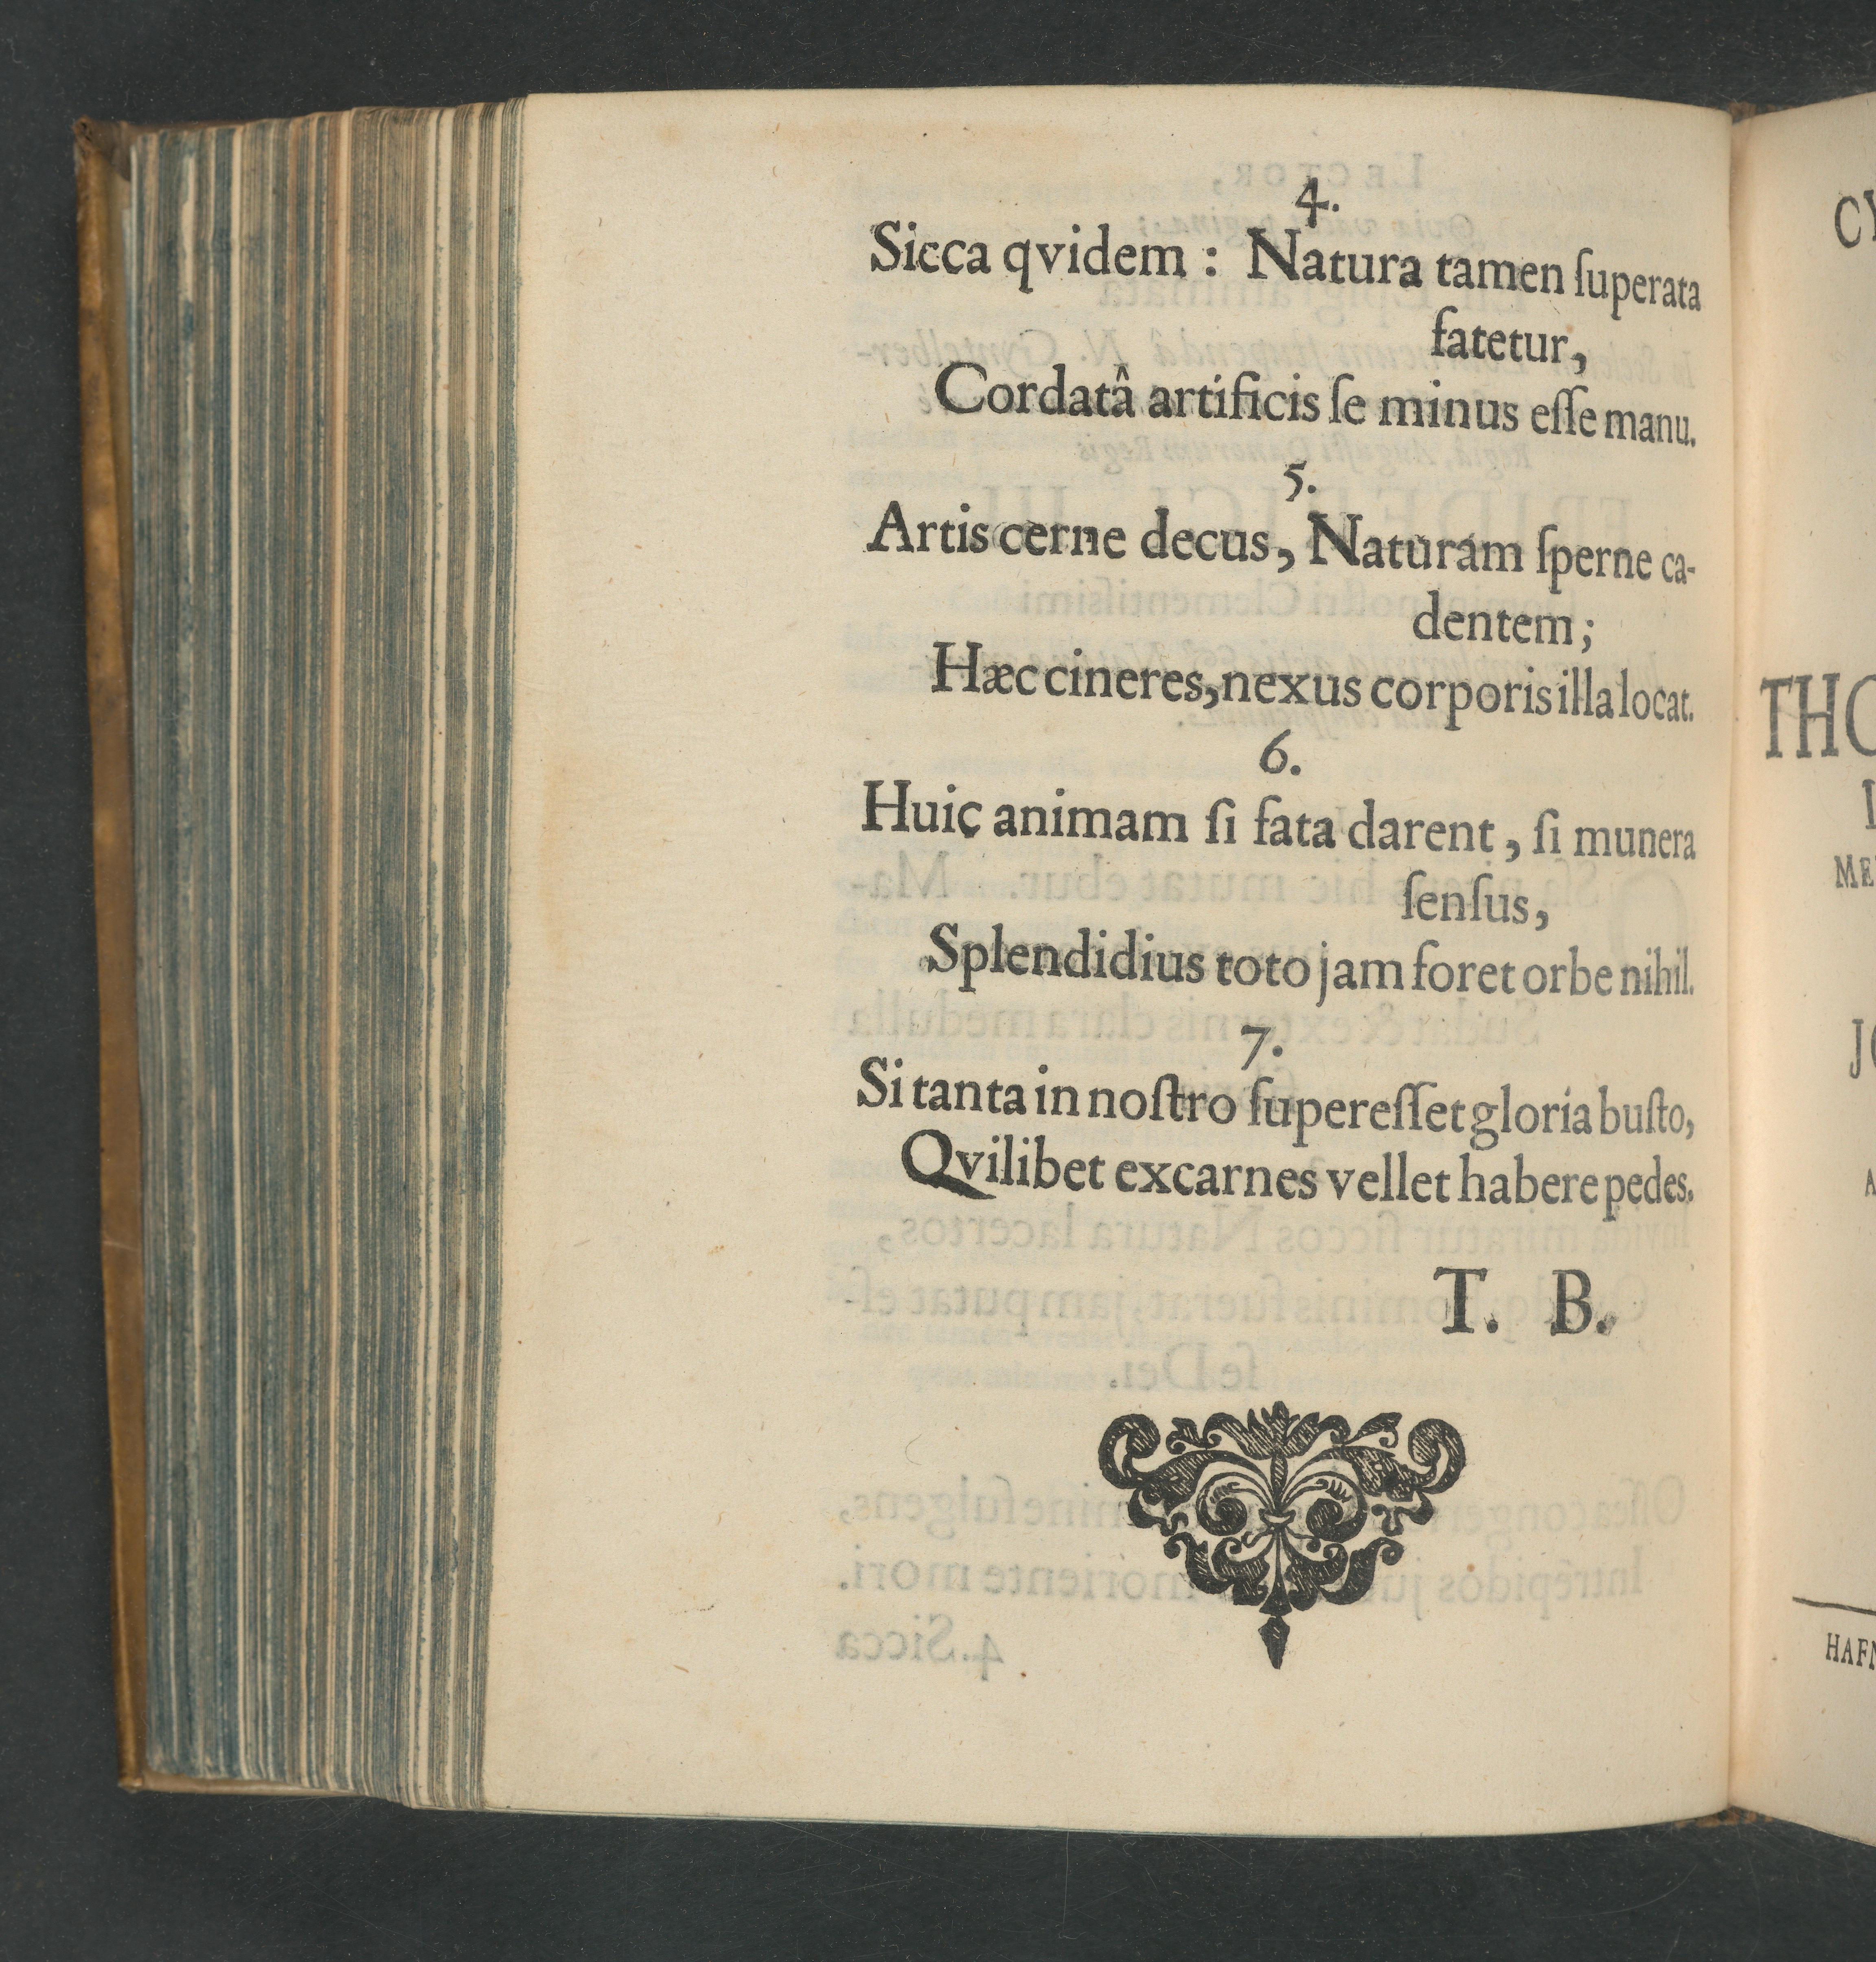 4.
Sicca qvidem : Natura tamen ſuperata
fatetur,
Cordatâ artificis ſe minus eſſe manu.
5.
Artis cerne decus, Naturam ſperne ca-
dentem;
Hæc cineres, nexus corporis illa locat.
6.
Huic animam ſi fata darent, ſi munera
ſenſus,
Splendidius toto jam foret orbe nihil.
7.
Si tanta in noſtro ſupereſſet gloria buſto,
Qvilibet excarnes vellet habere pedes.
T. B.
CY
THO
ME
JO
A
HAFN